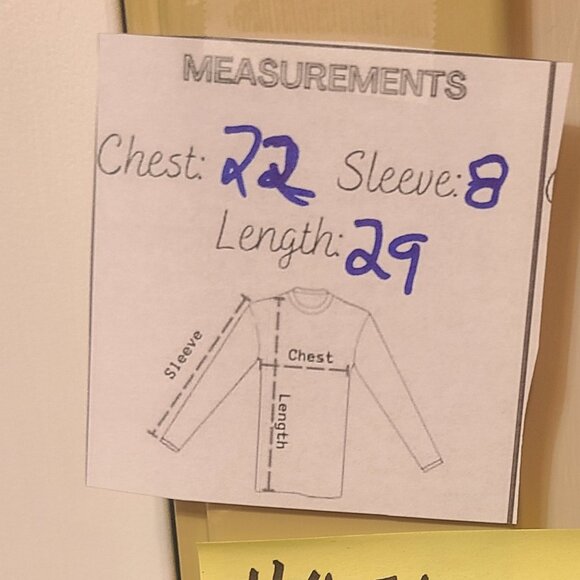 MEASUREMENTS
Chest: 22 Sleeve: 8
Length: 29
Sleeve
Chest
Length